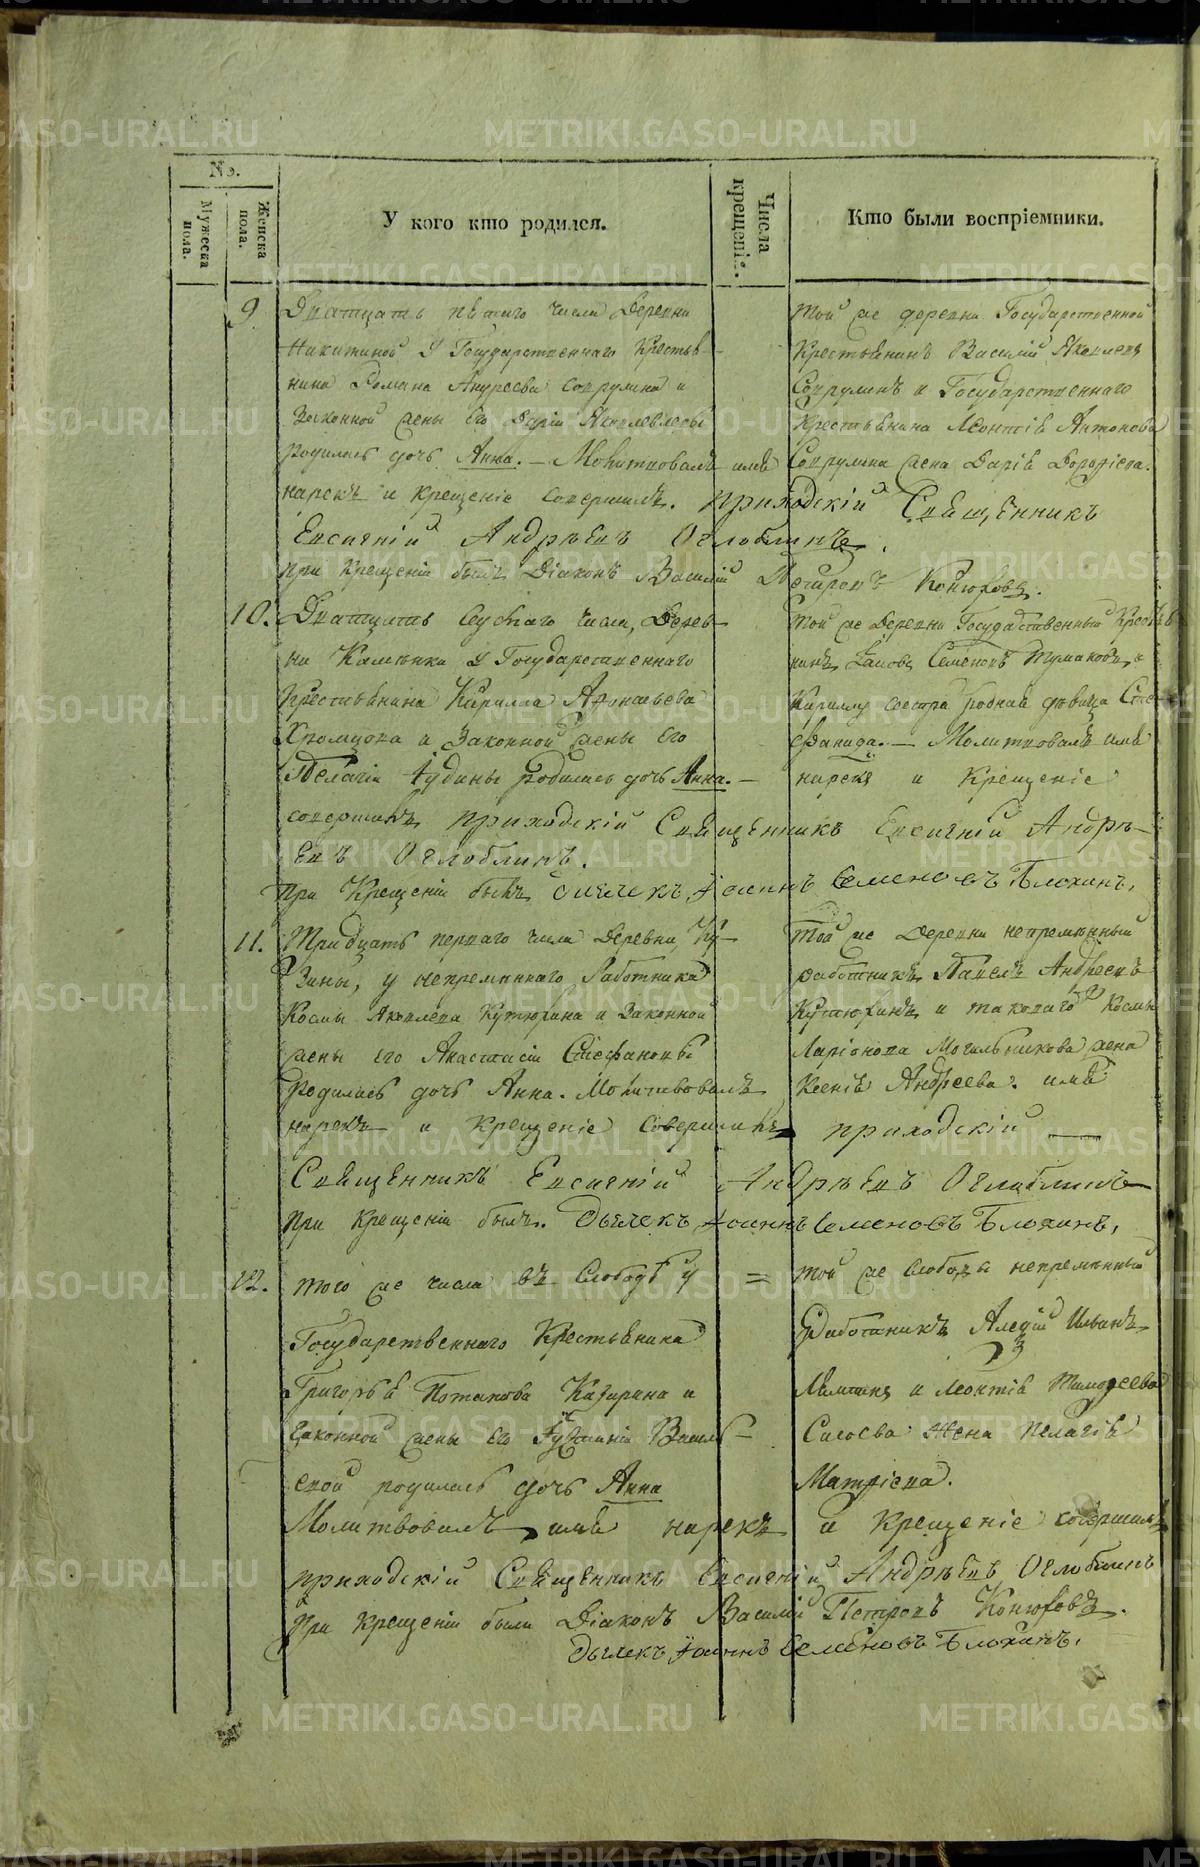 No.
Мужеска пола.
Женска пола.
У кого кто родился.
Числа крещенія.
Кто были воспріемники.
9
Дватцать пятаго числа Деревни
Никитиной У Государственнаго Крестья-
нина Романа Андреева и
Законной жены Его Дарій Яковлевсвы
родилась дочь Анна. – Молитвовалъ имя
нарекъ и крещеніе совершилъ. приходскій Священникъ
Евсигній Андрѣевъ Оглоблинъ.
при Крещеніи былъ Діаконъ Василій Петровъ Конюховъ.
той же деревни Государственной
Крестьянинъ Василій Яковлевъ
и Государственнаго
Крестьянина Леонтія Антонова
жена Дарія
10.
Дватцать седмаго числа, Дерев-
ни Калинки У Государственнаго
Крестьянина Кирилла Афонасьева
Храмцова и Законной жены Его
Пелагіи Іудины родилась дочь Анна. –
совершилъ приходскій Священникъ Евсигній Андрѣ-
евъ Оглоблинъ.
при Крещеніи былъ дьячекъ, Іоаннъ Семеновъ Блохинъ,
той же Деревни Государственный Крестья
нинъ Семеновъ Тумаковъ и
Кириллу сестра родная дѣвица Сте
фанида. – Молитвовалъ имя
нарекъ и Крещеніе
11.
Тридцать перваго числа Деревни Ку-
зины, у непремѣннаго Работника
Космы Яковлева Кутюхина и Законной
жены его Анастасіи Стефановы
Родилась дочь Анна. Молитвовалъ
нарекъ и Крещеніе Совершилъ приходскій
Священникъ Евсигній Андрѣевъ Оглоблинъ
при крещеніи былъ. Дьячекъ Іоаннъ Семеновъ Блохинъ,
Той же Деревни непремѣнный
работникъ Павелъ Андреевъ
Кутюхинъ и таковаго Космы
Ларіонова Могильникова жена
Ксенія Андреева. имя
12.
того же числа въ Слободѣ у =
Государственнаго Крестьянина
Григорья Потапова и
Законной жены Его Василь-
евой родилась дочь Анна
Молитвовалъ имя нарекъ и крещеніе совершилъ
приходскій Священникъ Евсигній Андрѣевъ Оглоблинъ
При крещеніи были Діаконъ Василій Петровъ Конюховъ.
Дьячекъ Іоаннъ Семеновъ Блохинъ.
той же Слободы непремѣнный
Работникъ Иванъ
и Леонтія Тимофеева
жена Пелагія
METRIKI.GASO-URAL.RU